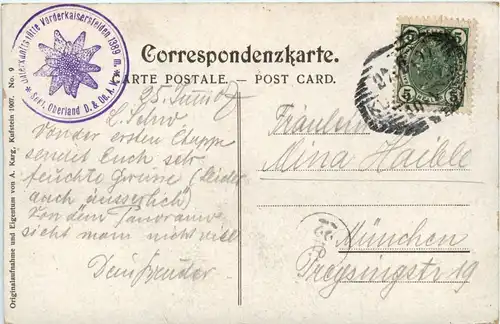 Unterkunftshütte Vorderkaiserfelden 1389 m.
Sect. Oberland D. & Oe. A. V.
Correspondenzkarte.
CARTE POSTALE. — POST CARD.
Originalaufnahme und Eigentum von A. Karg, Kufstein 1907. No. 9
25. Juni
Von der ersten Etappe
sendet Euch sehr
feuchte Grüsse (leider
auch äusserlich)
Von dem Panorama
sieht man nicht viel
Dein Bruder
Fräulein
Mina Haible
München
Preysingstr 19
5 5